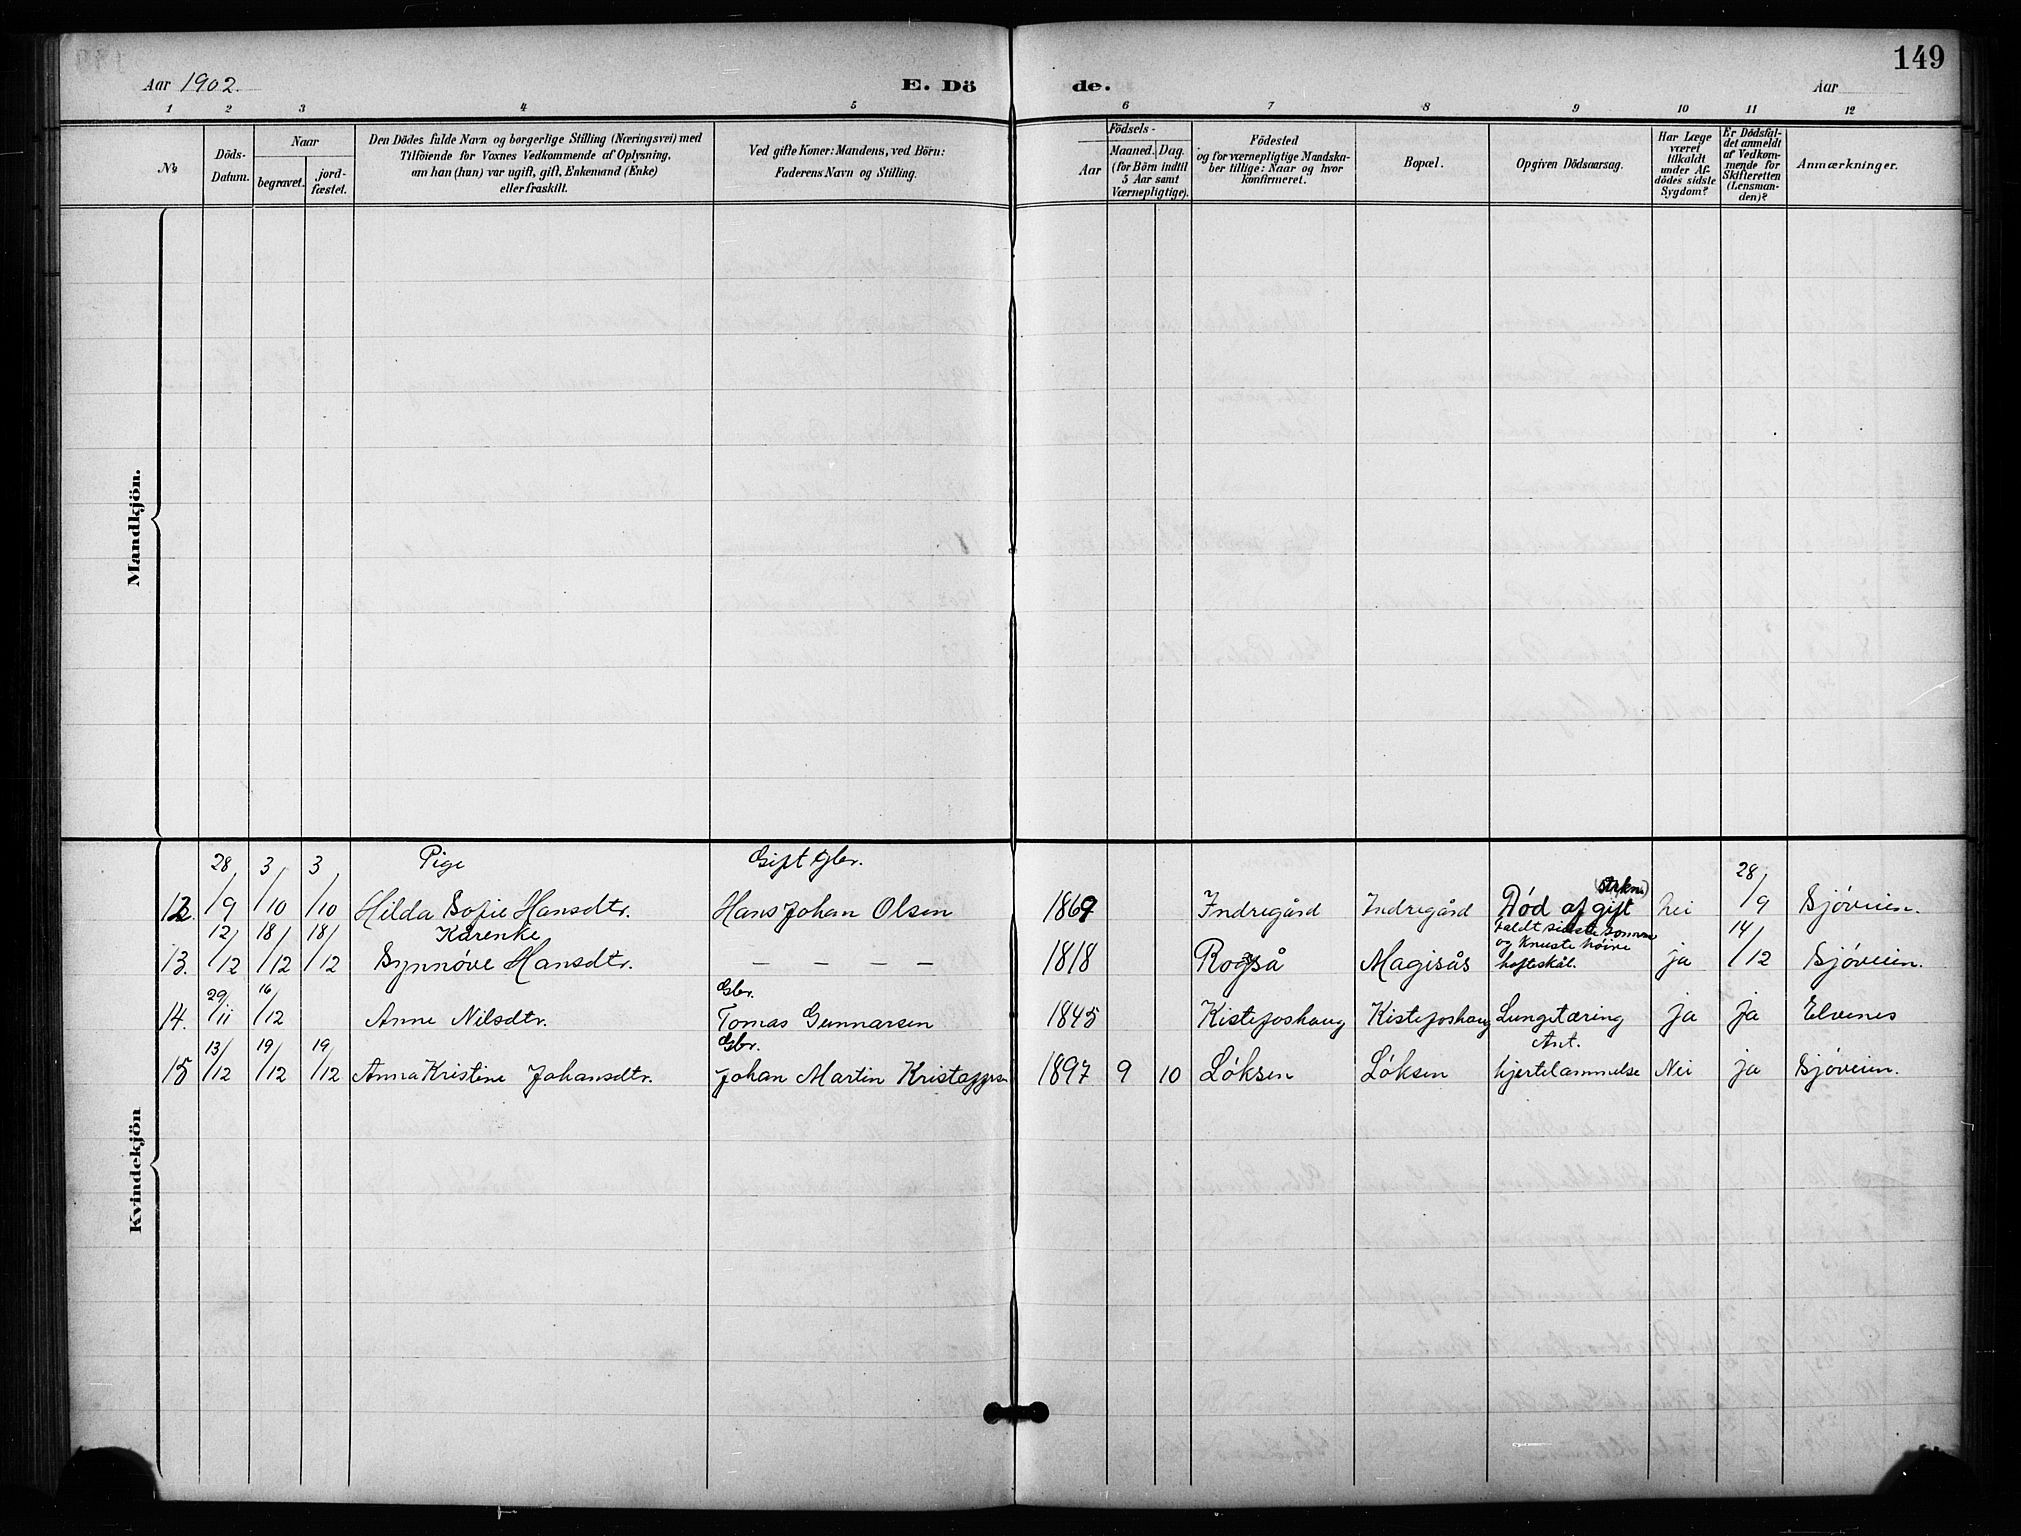 149
Aar 1902.
E. Dö
de.
Aar
1 2 3 4 5 6 7 8 9 10 11 12
No
Döds-
Datum.
Naar
begravet.
jord-
fæstet.
Den Dödes fulde Navn og borgerlige Stilling (Næringsvei) med
Tilföiende for Voxnes Vedkommende af Oplysning,
om han (hun) var ugift, gift, Enkemand (Enke)
eller fraskilt.
Ved gifte Koner: Mandens, ved Börn:
Faderens Navn og Stilling.
Födsels-
Aar
Maaned. Dag.
(for Börn indtil
5 Aar samt
Værnepligtige).
Födested
og for værnepligtige Mandska-
ber tillige: Naar og hvor
konfirmeret.
Bopæl.
Opgiven Dödsaarsag.
Har Læge
været
tilkaldt
under Af-
dödes sidste
Sygdom?
Er Dödsfal-
det anmeldt
af Vedkom-
mende for
Skifteretten
(Lensman-
den)?
Anmærkninger.
Mandkjön.
Kvindekjön
28 3 3 Pige Gift Gbr. 28
12. /9 /10 /10 Hilda Sofie Hansdtr. Hans Johan Olsen 1869 Indregård Indregård Död af gift nei /9 Sjöveien.
12 18 18 Kårenke faldt sidste sommer 14
og knuste höire
13. /12 /12 /12 Synnöve Hansdtr. — — — — 1818 Rogså Magisås hofteskål. ja /12 Sjöveien.
29 16 Gbr.
14. /11 /12 Anne Nilsdtr. Tomas Gunnarsen 1845 Kistefoshaug Kistefoshaug Lungetæring ja ja Elvenes
13 19 19 Gbr. Ant.
15 /12 /12 /12 Anna Kristine Johansdtr. Johan Martin Kristoffersen 1897 9 10 Löksen Löksen hjertelammelse Nei ja Sjöveien.